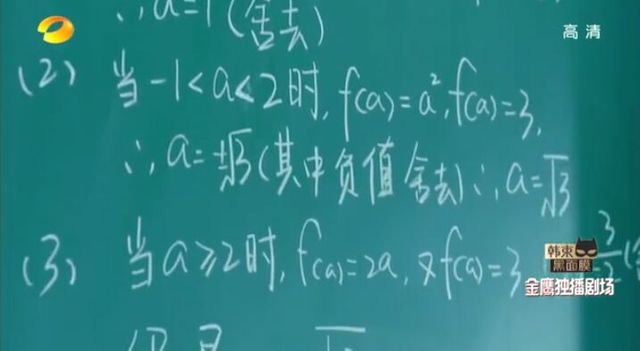 ∴a=1(舍去)
高清
(2) 当-1<a<2时,f(a)=a²,f(a)=3,
∴a=±√3(其中负值舍去)∴,a=√3
(3) 当a≥2时,f(a)=2a,又f(a)=3 3/2(
韩束
黑面膜
金鹰独播剧场